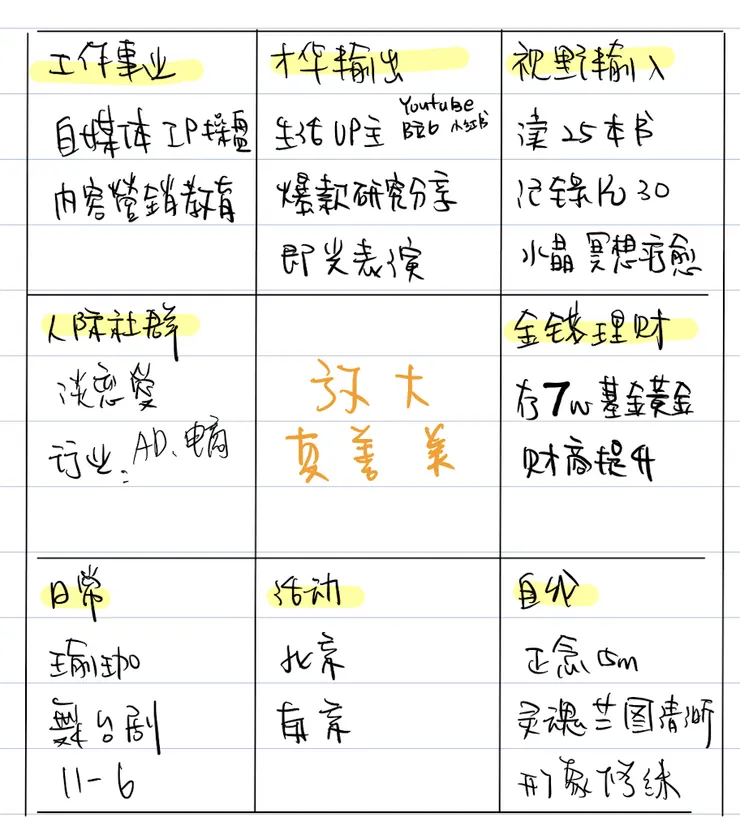 工作事业
自媒体 IP操盘
内容營銷教育
才华输出
生活UP主 Youtube
B站 小红书
爆款研究分享
即兴表演
视野输入
读25本书
记錄片30
水晶 冥想疗愈
人际社群
谈恋爱
行业: AD、电商
放大
真善美
金钱理财
存7w基金黄金
财商提升
日常
瑜珈
舞台剧
11-6
活动
北京
自我
正念15m
灵魂兰图清晰
形象修练